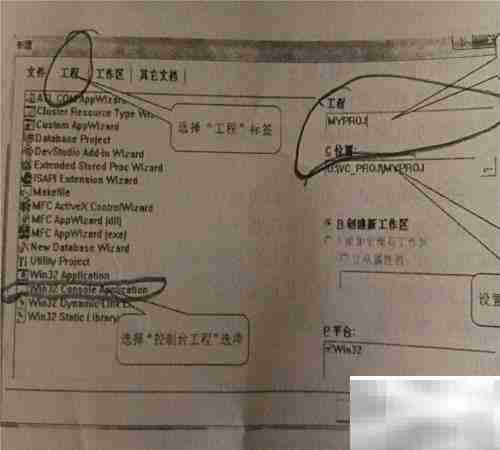 新建
文件 工程 工作区 其它文档
ATL COM AppWizard
Cluster Resource Type Wiz
Custom AppWizard
Database Project
DevStudio Add-in Wizard
Extended Stored Proc Wizard
ISAPI Extension Wizard
Makefile
MFC ActiveX ControlWizard
MFC AppWizard (dll)
MFC AppWizard (exe)
New Database Wizard
Utility Project
Win32 Application
Win32 Console Application
Win32 Dynamic-Link
Win32 Static Library
选择“工程”标签
选择“控制台工程”选项
工程
MYPROJ
C 位置:
D:\VC_PROJ\MYPROJ
R 创建新工作区
设置
P 平台:
Win32